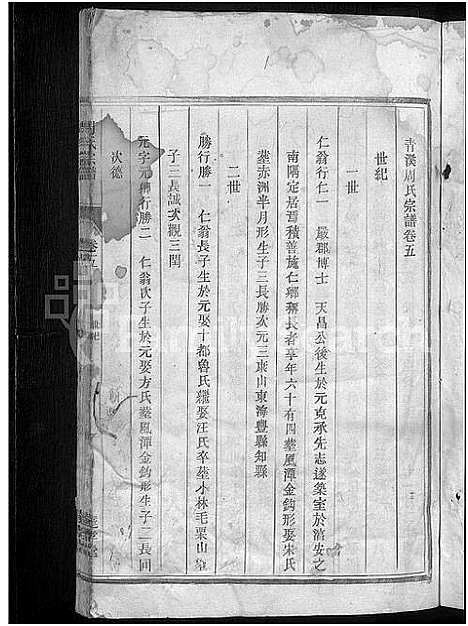 青溪周氏宗譜卷五
世紀
一世
仁翁行仁一 嚴郡博士 天昌公後生於元克承先志遂築室於淳安之
南隅定居焉積善施仁鄉稱長者享年六十有四塟風潭金鈎形娶宋氏
塟赤洲半月形生子三長勝次元三東山東海豐縣知縣
二世
勝行勝一 仁翁長子生於元娶十都魯氏繼娶汪氏卒塟小林毛栗山
子三長誠次觀三閏
元字元 行勝二 仁翁次子生於元娶方氏塟風潭金鈎形生子二長同
次德
周氏宗譜
卷五
世紀